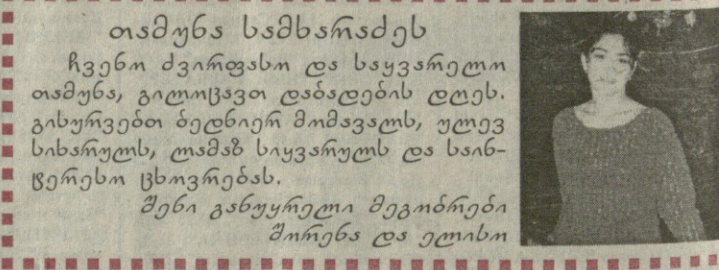 თამუნა სამხარაძეს
ჩვენო ძვირფასო და საყვარელო
თამუნა, გილოცავთ დაბადების დღეს.
გისურვებთ ბედნიერ მომავალს, ულევ
სიხარულს, ლამაზ სიყვარულს და საინ-
ტერესო ცხოვრებას.
შენი განუყრელი მეგობრები
შორენა და ელისო